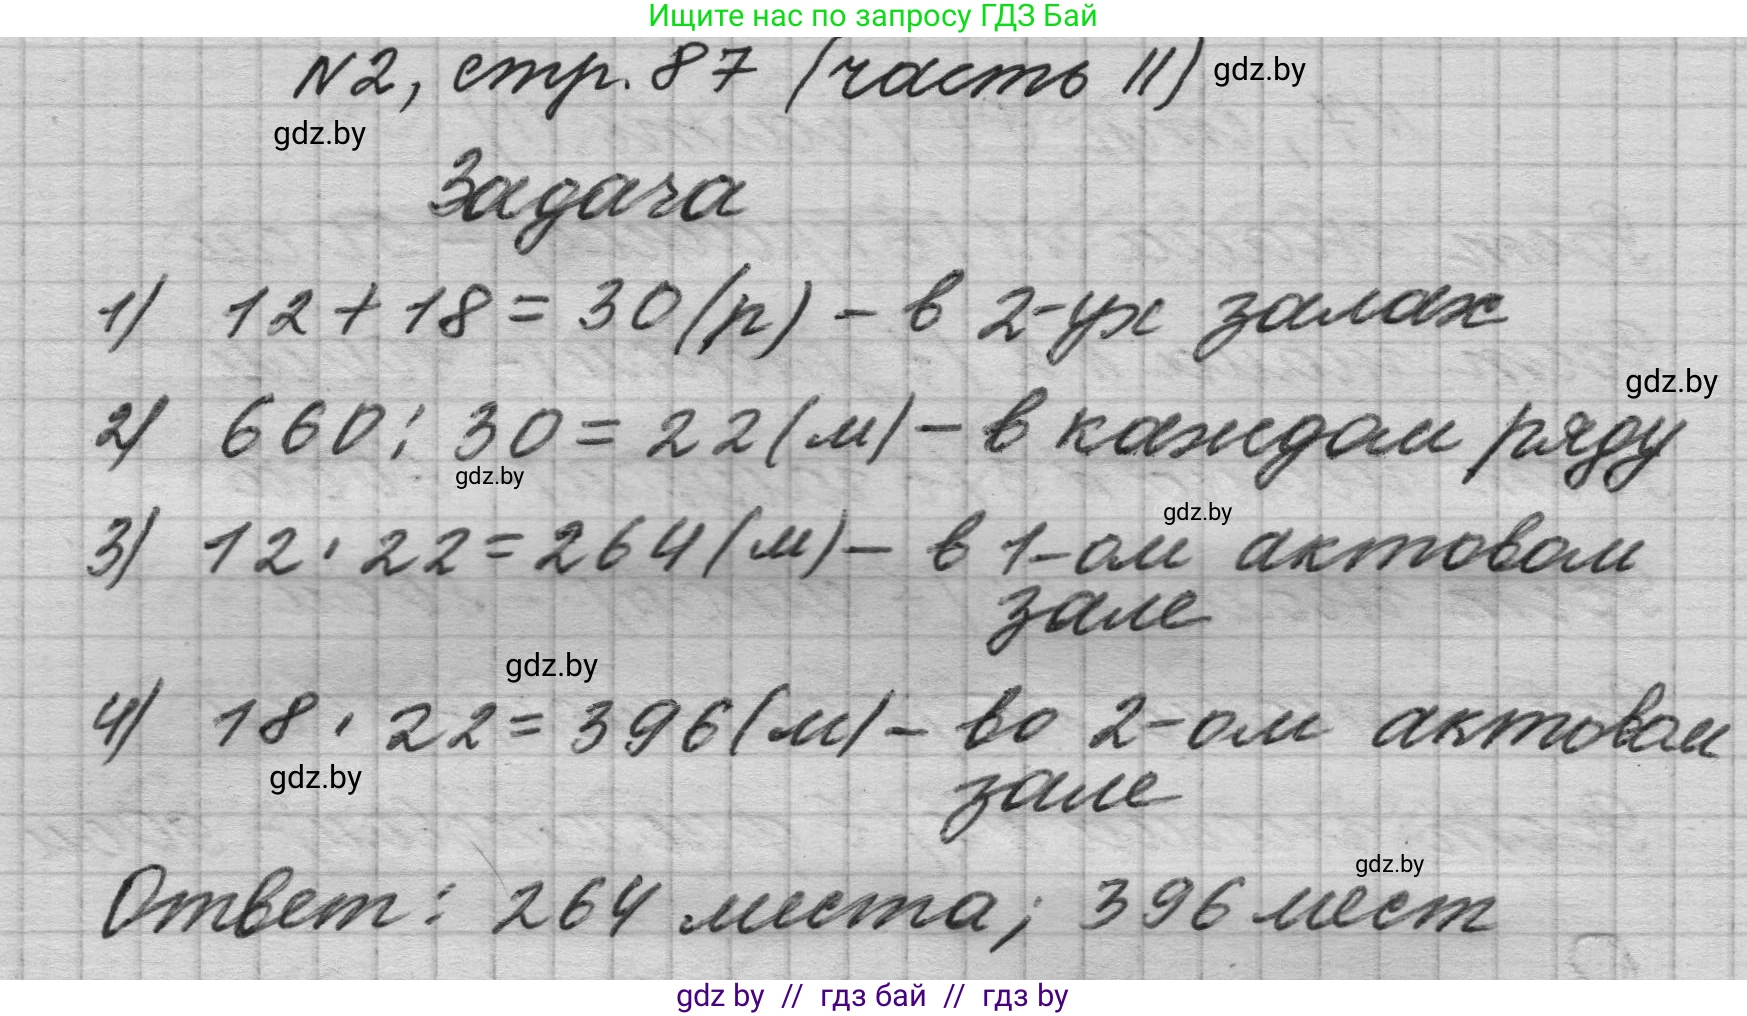 Ищите нас по запросу ГДЗ Бай
№2, стр. 87 (часть II) gdz.by
gdz.by
Задача
1) 12 + 18 = 30 (р) – в 2-ух залах
gdz.by
2) 660 : 30 = 22 (м) – в каждом ряду
gdz.by
gdz.by
3) 12 · 22 = 264 (м) – в 1-ом актовом
зале
gdz.by
4) 18 · 22 = 396 (м) – во 2-ом актовом
gdz.by
зале
gdz.by
Ответ: 264 места; 396 мест
gdz by // гдз бай // гдз by